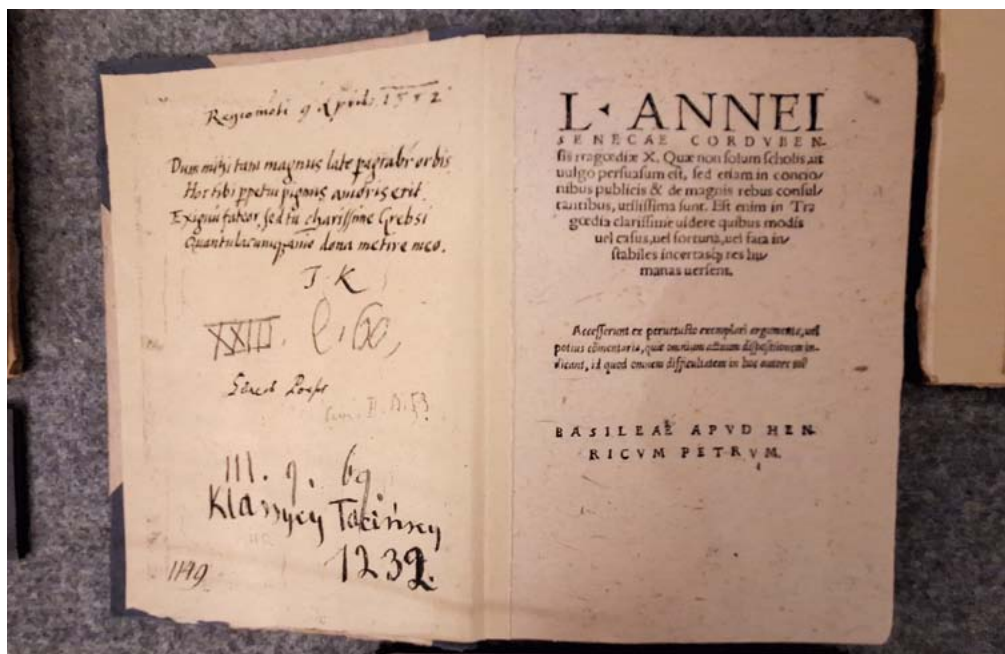 Regiomoti 9 Aprilis 1552
Dum mihi tam magnus late pagrabr orbis
Hoc tibi ppetui pignus amoris erit
Exiguū fateor, sed tu charissime Crebsi
Quantulacunq animo dona metire meo.
J K
XXIII.
III. 9. 69
Klassycy Łacińscy
1232.
1149
L· ANNEI
SENECAE CORDVBEN-
sis tragœdiæ X. Quæ non solum scholis, ut
uulgo persuasum est, sed etiam in concio-
nibus publicis & de magnis rebus consul-
tantibus, utilissima sunt. Est enim in Tra
gœdia clarissime uidere quibus modis
uel casus, uel fortuna, uel fata in-
stabiles incertasq; res hu-
manas uersent.
Accesserunt ex peruetusto exemplari argumenta, uel
potius cōmentaria, quæ omnium actuum dispositionem in-
dicant, id quod omnem difficultatem in hoc autore
BASILEAE APVD HEN-
RICVM PETRVM.